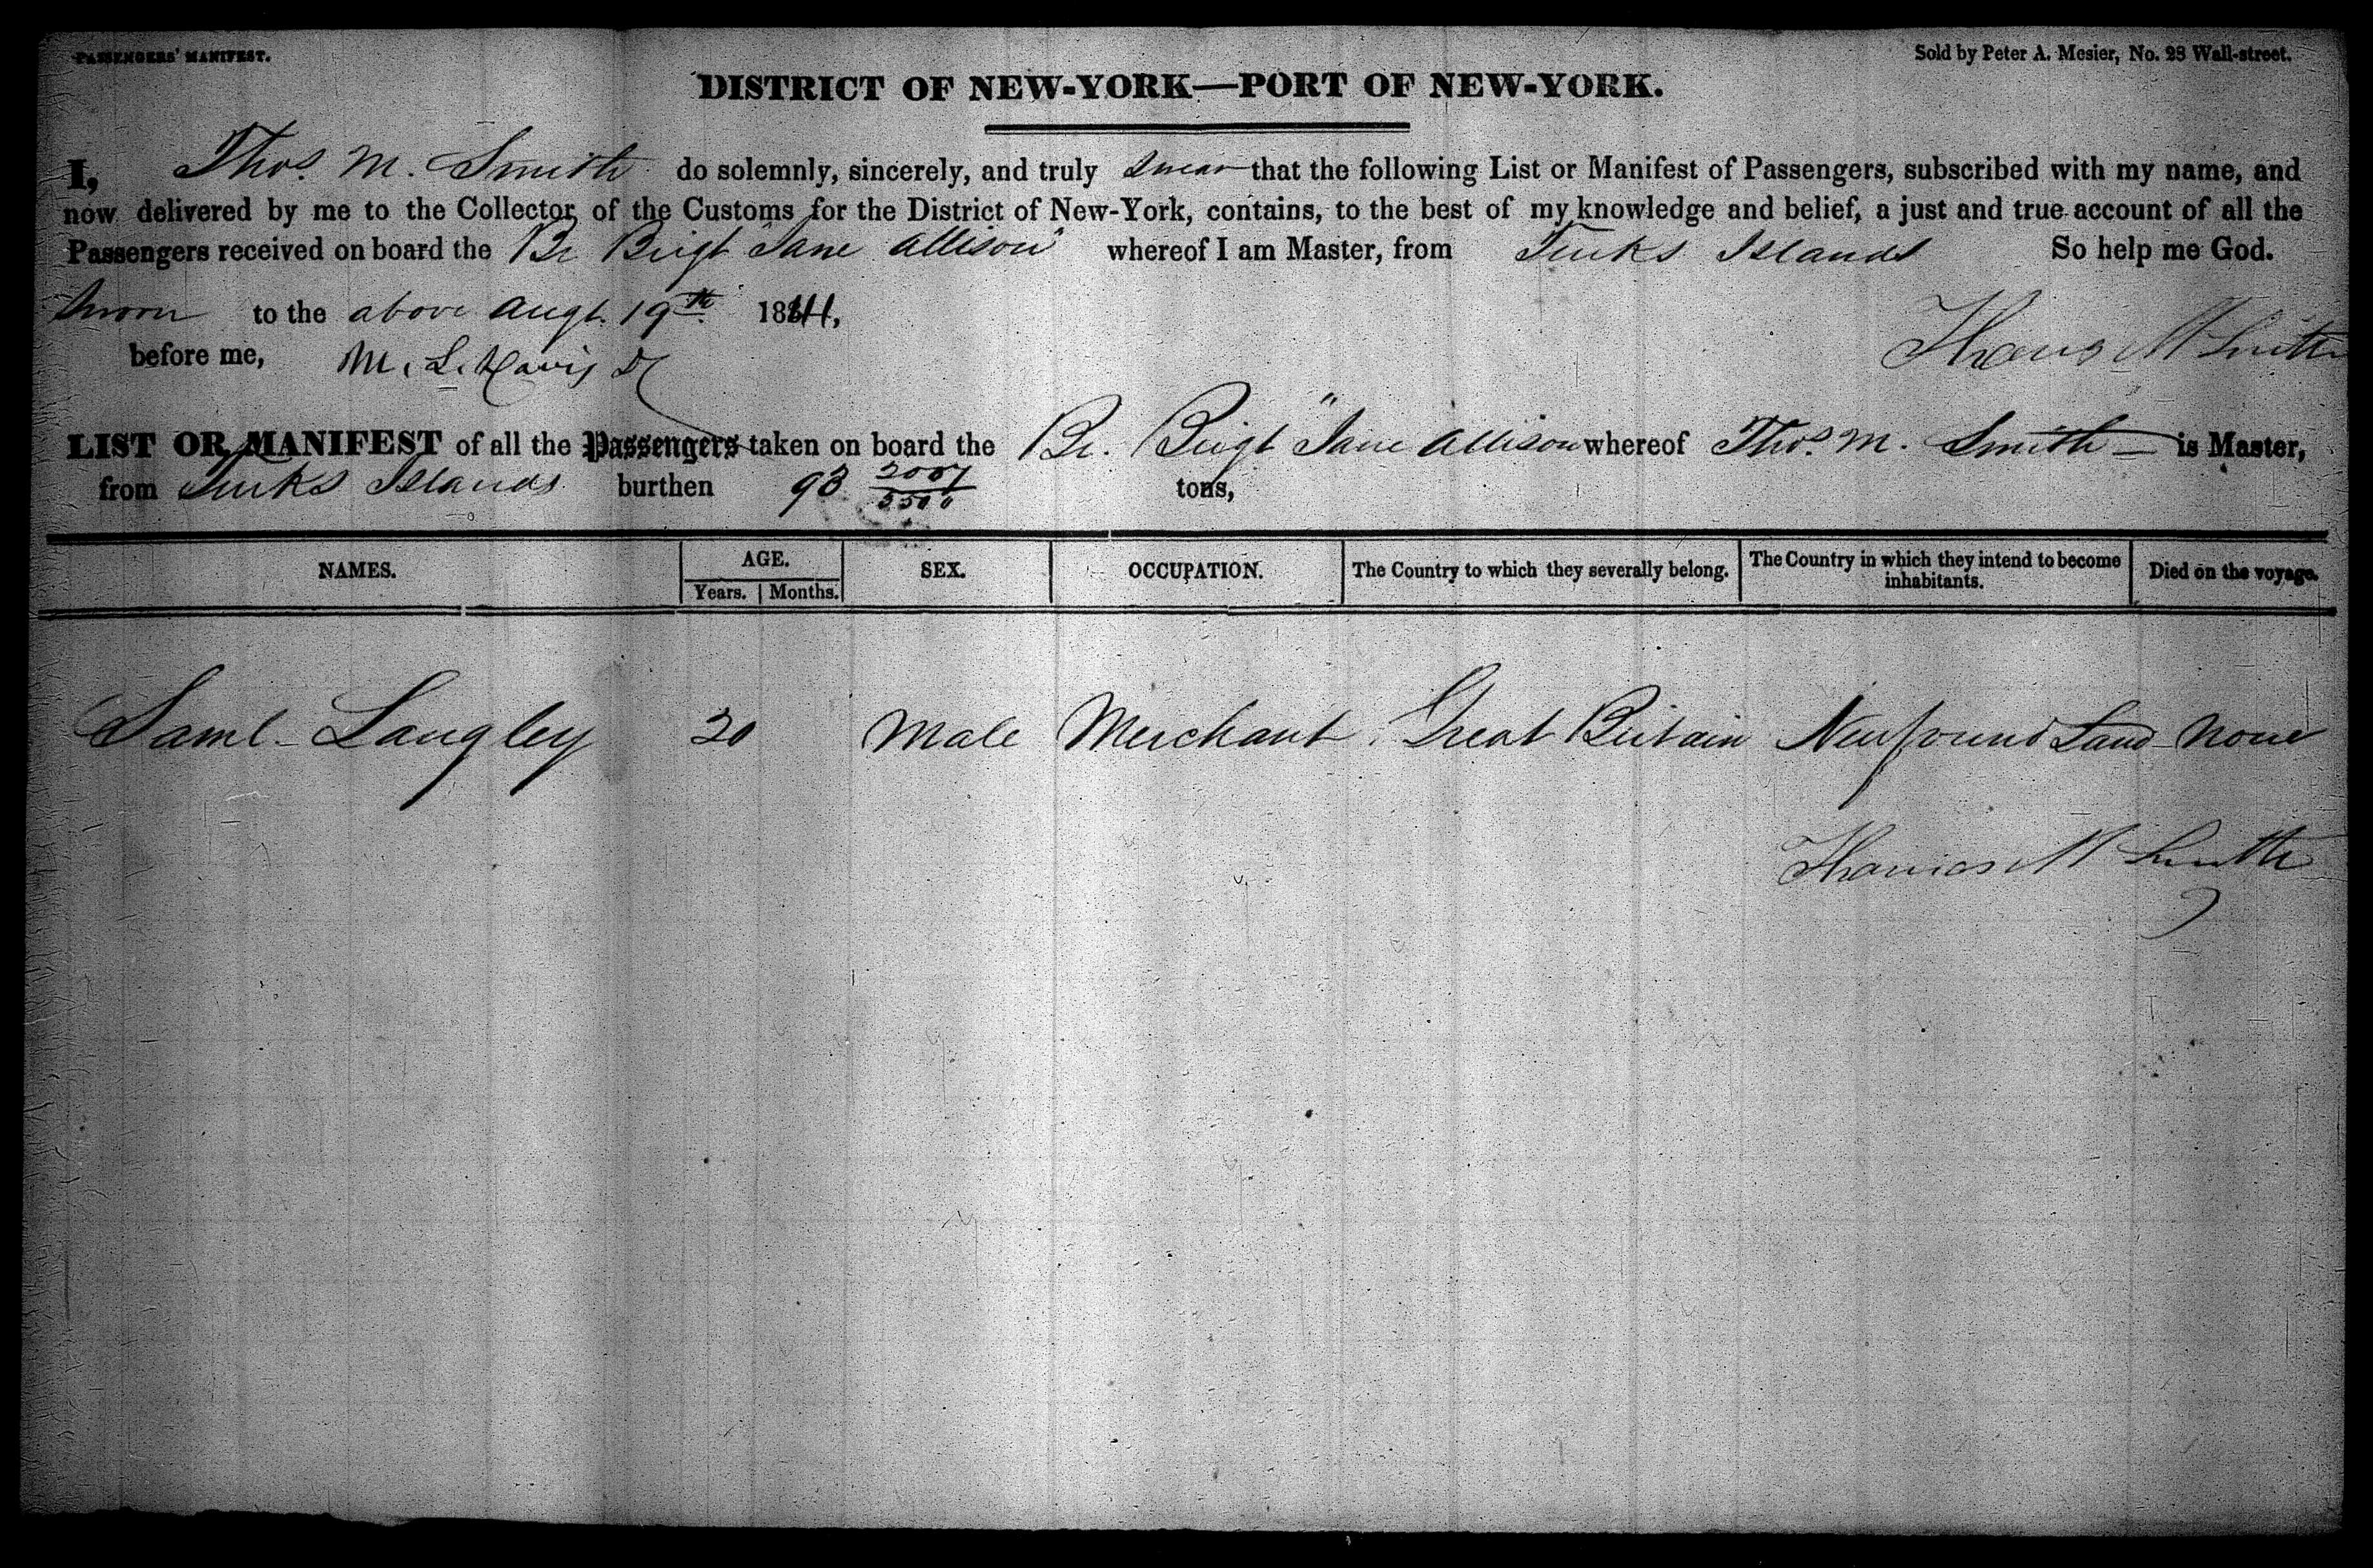 PASSENGERS' MANIFEST.
Sold by Peter A. Mesier, No. 28 Wall-street.
DISTRICT OF NEW-YORK—PORT OF NEW-YORK.
I, Thos. M. Smith do solemnly, sincerely, and truly swear that the following List or Manifest of Passengers, subscribed with my name, and
now delivered by me to the Collector of the Customs for the District of New-York, contains, to the best of my knowledge and belief, a just and true account of all the
Passengers received on board the Br Brigt "Jane Allison" whereof I am Master, from Turks Islands So help me God.
Sworn to the above Augt. 19th 1841,
Thomas M Smith
before me, M. L. Davis
LIST OR MANIFEST of all the Passengers taken on board the Br. Brigt "Jane Allison whereof Thos. M. Smith — is Master,
from Turks Islands burthen 93 tons,
NAMES. AGE. SEX. OCCUPATION. The Country to which they severally belong. The Country in which they intend to become inhabitants. Died on the voyage.
Years. Months.
Saml. Langley 30 Male Merchant. Great Britain Newfound Land None
Thomas M Smith